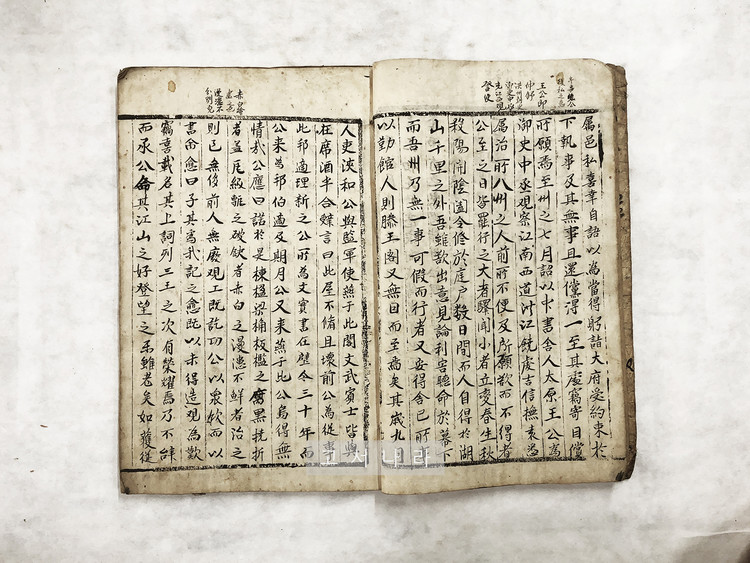 王公即
仲舒
登使
屬邑私喜幸自語以為當得躬詣大府受約束於
下執事及其無事且還儻得一至其處竊寄目償
所願焉至州之七月詔以中書舍人太原王公為
御史中丞觀察江南西道洪江饒虔吉信撫袁悉
屬治所八州之人前所不便及所願欲而不得者
公至之日皆罷行之大者驛聞小者立變春生秋
殺陽開陰閉令修於庭戶數日間而人自得於湖
山千里之外吾雖欲出意見論利害聽命於幕下
而吾州乃無一事可假而行者又安得舍己所事
以勤館人則滕王閣又無因而至焉矣其歲九
赤白
人吏浹和公與監軍使燕于此閣文武賓士皆與
在席酒半合辭言曰此屋不脩且壞前公為從事
此邦適理新之公所為文實書在壁今三十年而
公來為邦伯適及期月公又來燕于此公烏得無
情哉公應曰諾於是棟楹梁桷板檻之腐黑撓折
者盖瓦級甎之破缺者赤白之漫漶不鮮者治之
則已無侈前人無廢觀工既訖功公以衆飲而以
書命愈曰子其為我記之愈既以未得造觀為歎
竊喜載名其上詞列三王之次有榮耀焉乃不辞
而承公命其江山之好登望之樂雖老矣如獲從
고서나라